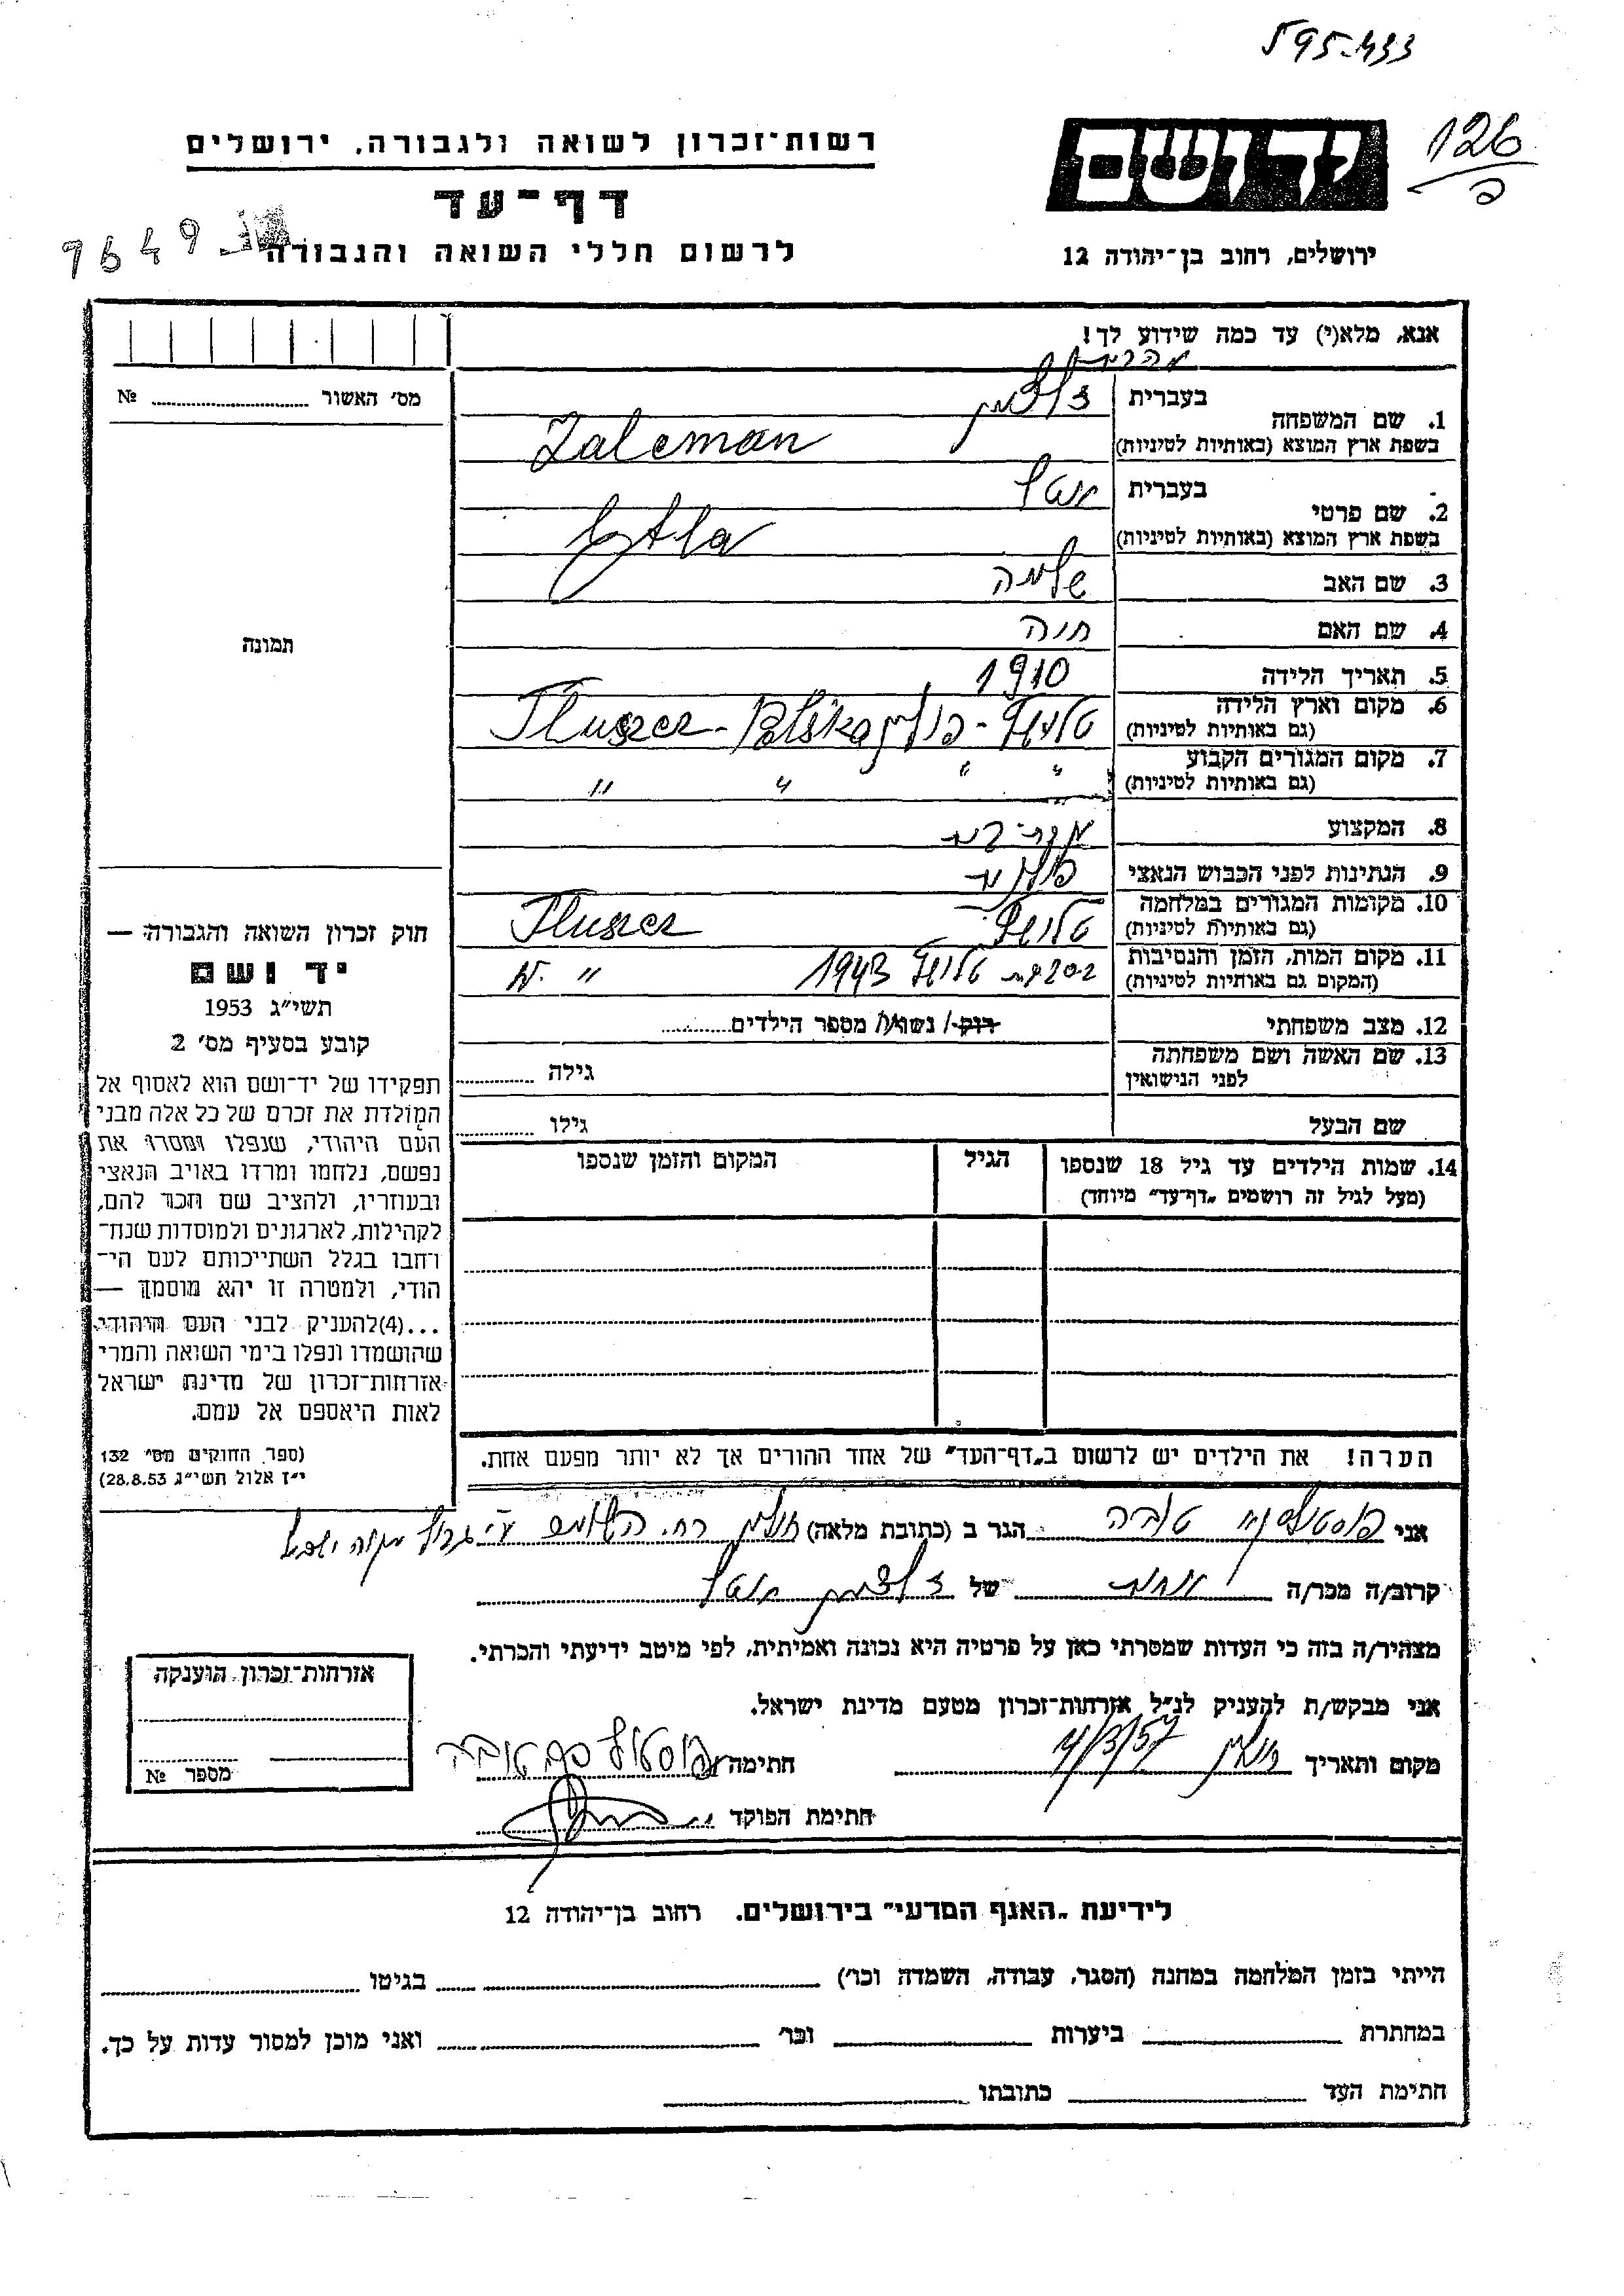 595-433
126
רשות־זכרון לשואה ולגבורה, ירושלים
יד ושם
דף־עד
9649
לרשום חללי השואה והגבורה
ירושלים, רחוב בן־יהודה 12
אנא, מלא(י) עד כמה שידוע לך!
מס׳ האשור № 
בעברית זלצמן
1. שם המשפחה
בשפת ארץ המוצא (באותיות לטיניות) Zaleman
בעברית
2. שם פרטי
בשפת ארץ המוצא (באותיות לטיניות)
3. שם האב שלמה
4. שם האם חיה
תמונה
5. תאריך הלידה 1910
6. מקום וארץ הלידה
(גם באותיות לטיניות) פולין Tluszcz - Polska
7. מקום המגורים הקבוע
(גם באותיות לטיניות) " " " "
8. המקצוע
9. הנתינות לפני הכבוש הנאצי
10. מקומות המגורים במלחמה
(גם באותיות לטיניות) Tluszcz
11. מקום המות, הזמן והנסיבות
(המקום גם באותיות לטיניות) 1943 "
12. מצב משפחתי רווק/ נשוי/ מספר הילדים
13. שם האשה ושם משפחתה
לפני הנישואין גילה
שם הבעל גילו
14. שמות הילדים עד גיל 18 שנספו הגיל המקום והזמן שנספו
(מעל לגיל זה רושמים „דף־עד״ מיוחד)
חוק זכרון השואה והגבורה —
יד ושם
תשי״ג 1953
קובע בסעיף מס׳ 2
תפקידו של יד־ושם הוא לאסוף אל
המולדת את זכרם של כל אלה מבני
העם היהודי, שנפלו ומסרו את
נפשם, נלחמו ומרדו באויב הנאצי
ובעוזריו, ולהציב שם וזכר להם,
לקהילות, לארגונים ולמוסדות שנח־
רחבו בגלל השתייכותם לעם הי־
הודי, ולמטרה זו יהא מוסמך —
...(4)להעניק לבני העם היהודי
שהושמדו ונפלו בימי השואה והמרי
אזרחות־זכרון של מדינת ישראל
לאות היאספם אל עמם.
(ספר החוקים מס׳ 132
י״ז אלול תשי״ג 28.8.53)
הערה! את הילדים יש לרשום ב„דף־העד״ של אחד ההורים אך לא יותר מפעם אחת.
אני טובה הגר ב (כתובת מלאה) חולון רח.
קרוב/ה מכר/ה אחות של זלצמן
מצהיר/ה בזה כי העדות שמסרתי כאן על פרטיה היא נכונה ואמיתית, לפי מיטב ידיעתי והכרתי.
אני מבקש/ת להעניק לנ״ל אזרחות־זכרון מטעם מדינת ישראל.
מקום ותאריך חולון 4/3/57 חתימה טובה
חתימת הפוקד
אזרחות־זכרון הוענקה
מספר №
לידיעת „האגף המדעי״ בירושלים. רחוב בן־יהודה 12
הייתי בזמן המלחמה במחנה (הסגר, עבודה, השמדה וכו׳) בגיטו
במחתרת ביערות וכו׳ ואני מוכן למסור עדות על כך.
חתימת העד כתובתו